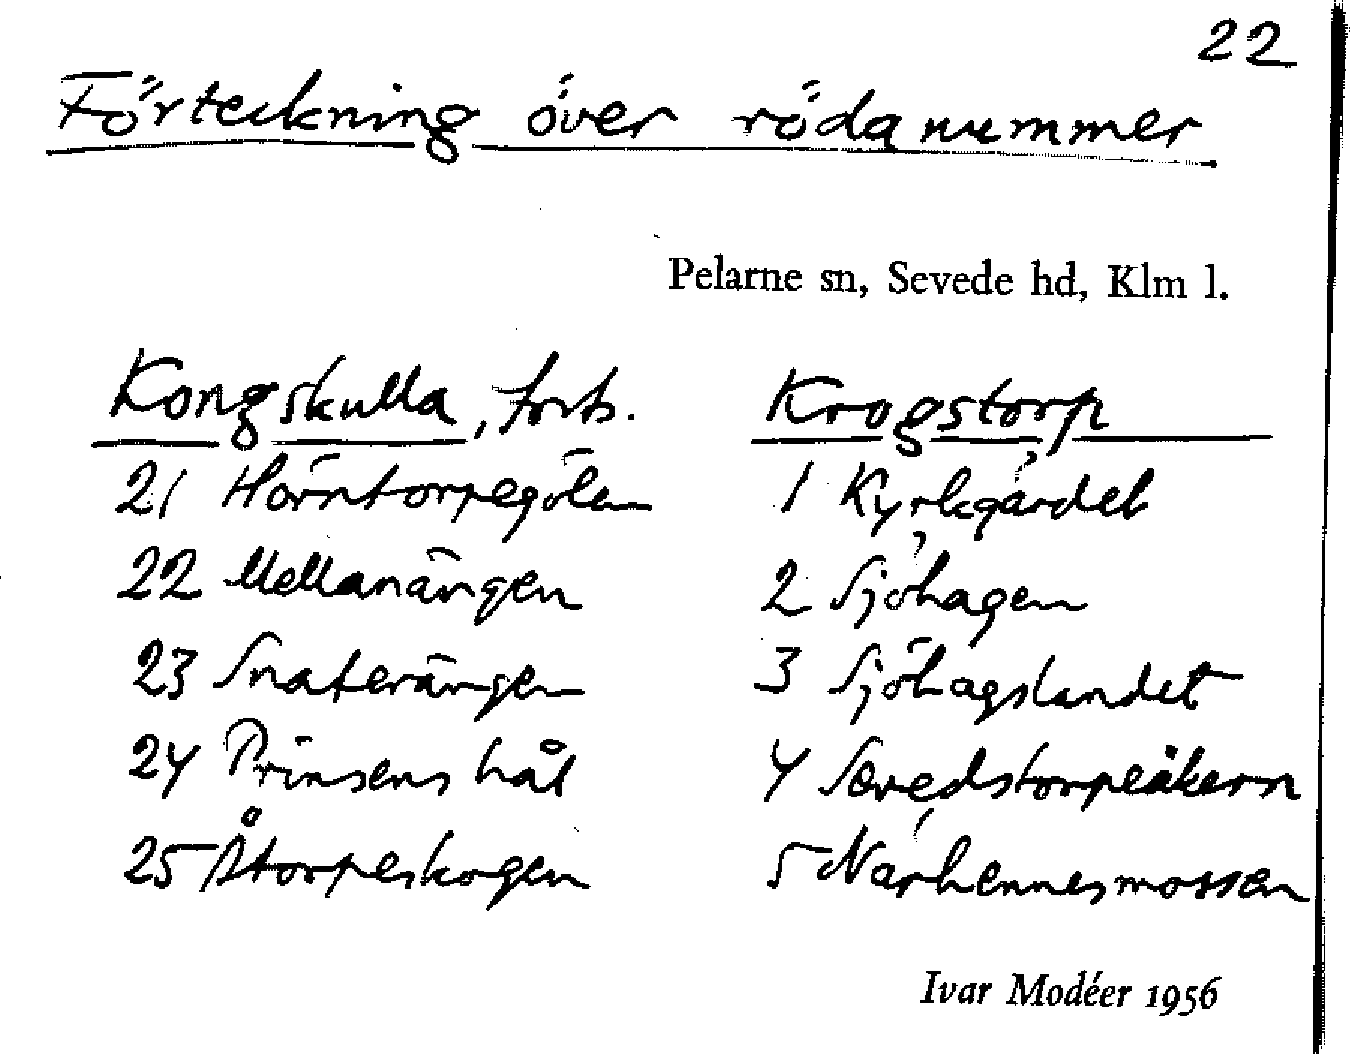 22
Förteckning över röda nummer
Pelarne sn, Sevede hd, Klm l.
Kongskulla, forts.
21 Hörntorpegölen
22 Mellanängen
23 Snaterängen
24 Prinsens hål
25 Åtorpeskogen
Krogstorp
1 Kyrkgärdet
2 Sjöhagen
3 Sjöhagslandet
4 Sevedstorpeåkern
5 Närhennesmossen
Ivar Modéer 1956